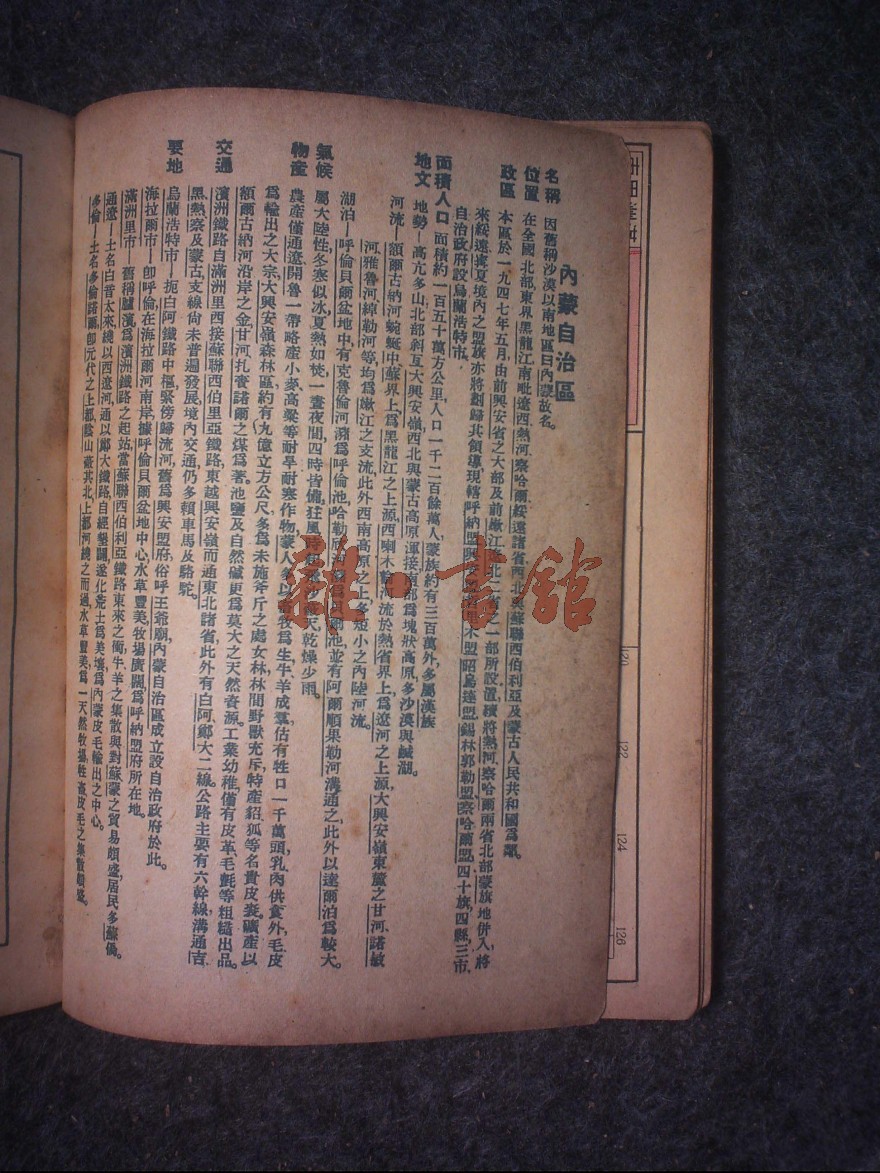 內蒙自治區
名稱 因舊稱沙漠以南地區曰內蒙故名。
位置 在全國北部東界黑龍江南毗遼西、熱河、察哈爾綏遠諸省西北與蘇聯西伯利亞及蒙古人民共和國為鄰。
政區 本區於一九四七年五月由前興安省之大部及前嫩江
北二省之一部所設置續將熱河、察哈爾兩省北部蒙旗地併入,將
來綏遠
夏境內之盟旗亦將劃歸其領導現轄呼納盟
木盟昭烏達盟錫林郭勒盟察哈爾盟四十旗,四縣,三市,
自治政府設烏蘭浩特市。
面積人口 面積約一百五十萬方公里,人口一千二百餘萬人,蒙族約有三百萬外,多屬漢族
地文 地勢—高亢多山北部斜亙大興安嶺,西北與蒙古高原渾接南部為塊狀高原,多沙漠與鹹湖。
河流—額爾古納河蜿蜒中蘇界上,為黑龍江之上源,西喇木
河流於熱省界上,為遼河之上源,大興安嶺東麓之甘河、諾敏
河雅魯河綽勒河等,均為嫩江之支流,此外西南高原之上多短小之內陸河流。
湖泊—呼倫貝爾盆地中有克魯倫河瀦為呼倫池,哈勒
貝爾池,並有阿爾順果勒河溝通之,此外以達爾泊為較大。
氣候 屬大陸性,冬寒似冰夏熱如焚,一晝夜間四時皆備,狂風時
天,乾燥少雨。
物產 農產僅通遼、開魯一帶略產小麥、高粱等耐旱耐寒作物,蒙人多以
牧為生牛羊成羣,估有牲口一千萬頭,乳肉供食外,毛皮
為輸出之大宗,大興安嶺森林區約有九億立方公尺,多為未施斧斤之處女林,林間野獸充斥特產貂狐等名貴皮裘,礦產以
額爾古納河沿岸之金,甘河扎賚諾爾之煤為著。池鹽及自然鹼更為莫大之天然資源。工業幼稚僅有皮革毛氈等粗糙出品。
交通 濱洲鐵路自滿洲里西接蘇聯西伯里亞鐵路,東越興安嶺而通東北諸省,此外有白阿、鄭大二線。公路主要有六幹線溝通吉、
黑、熱、察及蒙古,支線尚未普遍發展,境內交通仍多賴車馬及駱駝。
要地 烏蘭浩特市—扼白阿鐵路中樞,緊傍歸流河,舊為興安盟府,俗呼王爺廟,內蒙自治區成立設自治政府於此。
海拉爾市—卽呼倫在海拉爾河南岸,據呼倫貝爾盆地中心,水草豐美,牧場廣闊,為呼納盟府所在地。
滿洲里市—舊稱臚濱,為濱洲鐵路之起站,當蘇聯西伯利亞鐵路東來之衝,牛羊之集散與對蘇蒙之貿易頗盛,居民多蘇僑。
通遼—土名白昔太來,繞以西遼河,通以鄭大鐵路,自經墾闢,遂化荒土為美壤,為內蒙皮毛輸出之中心。
多倫—土名多倫諾爾,卽元代之上都,陰山蔽其北,上都河繞之而過,水草豐美,為一天然牧場,牲畜皮毛之集散頗盛。
雜·書館
120
122
124
126